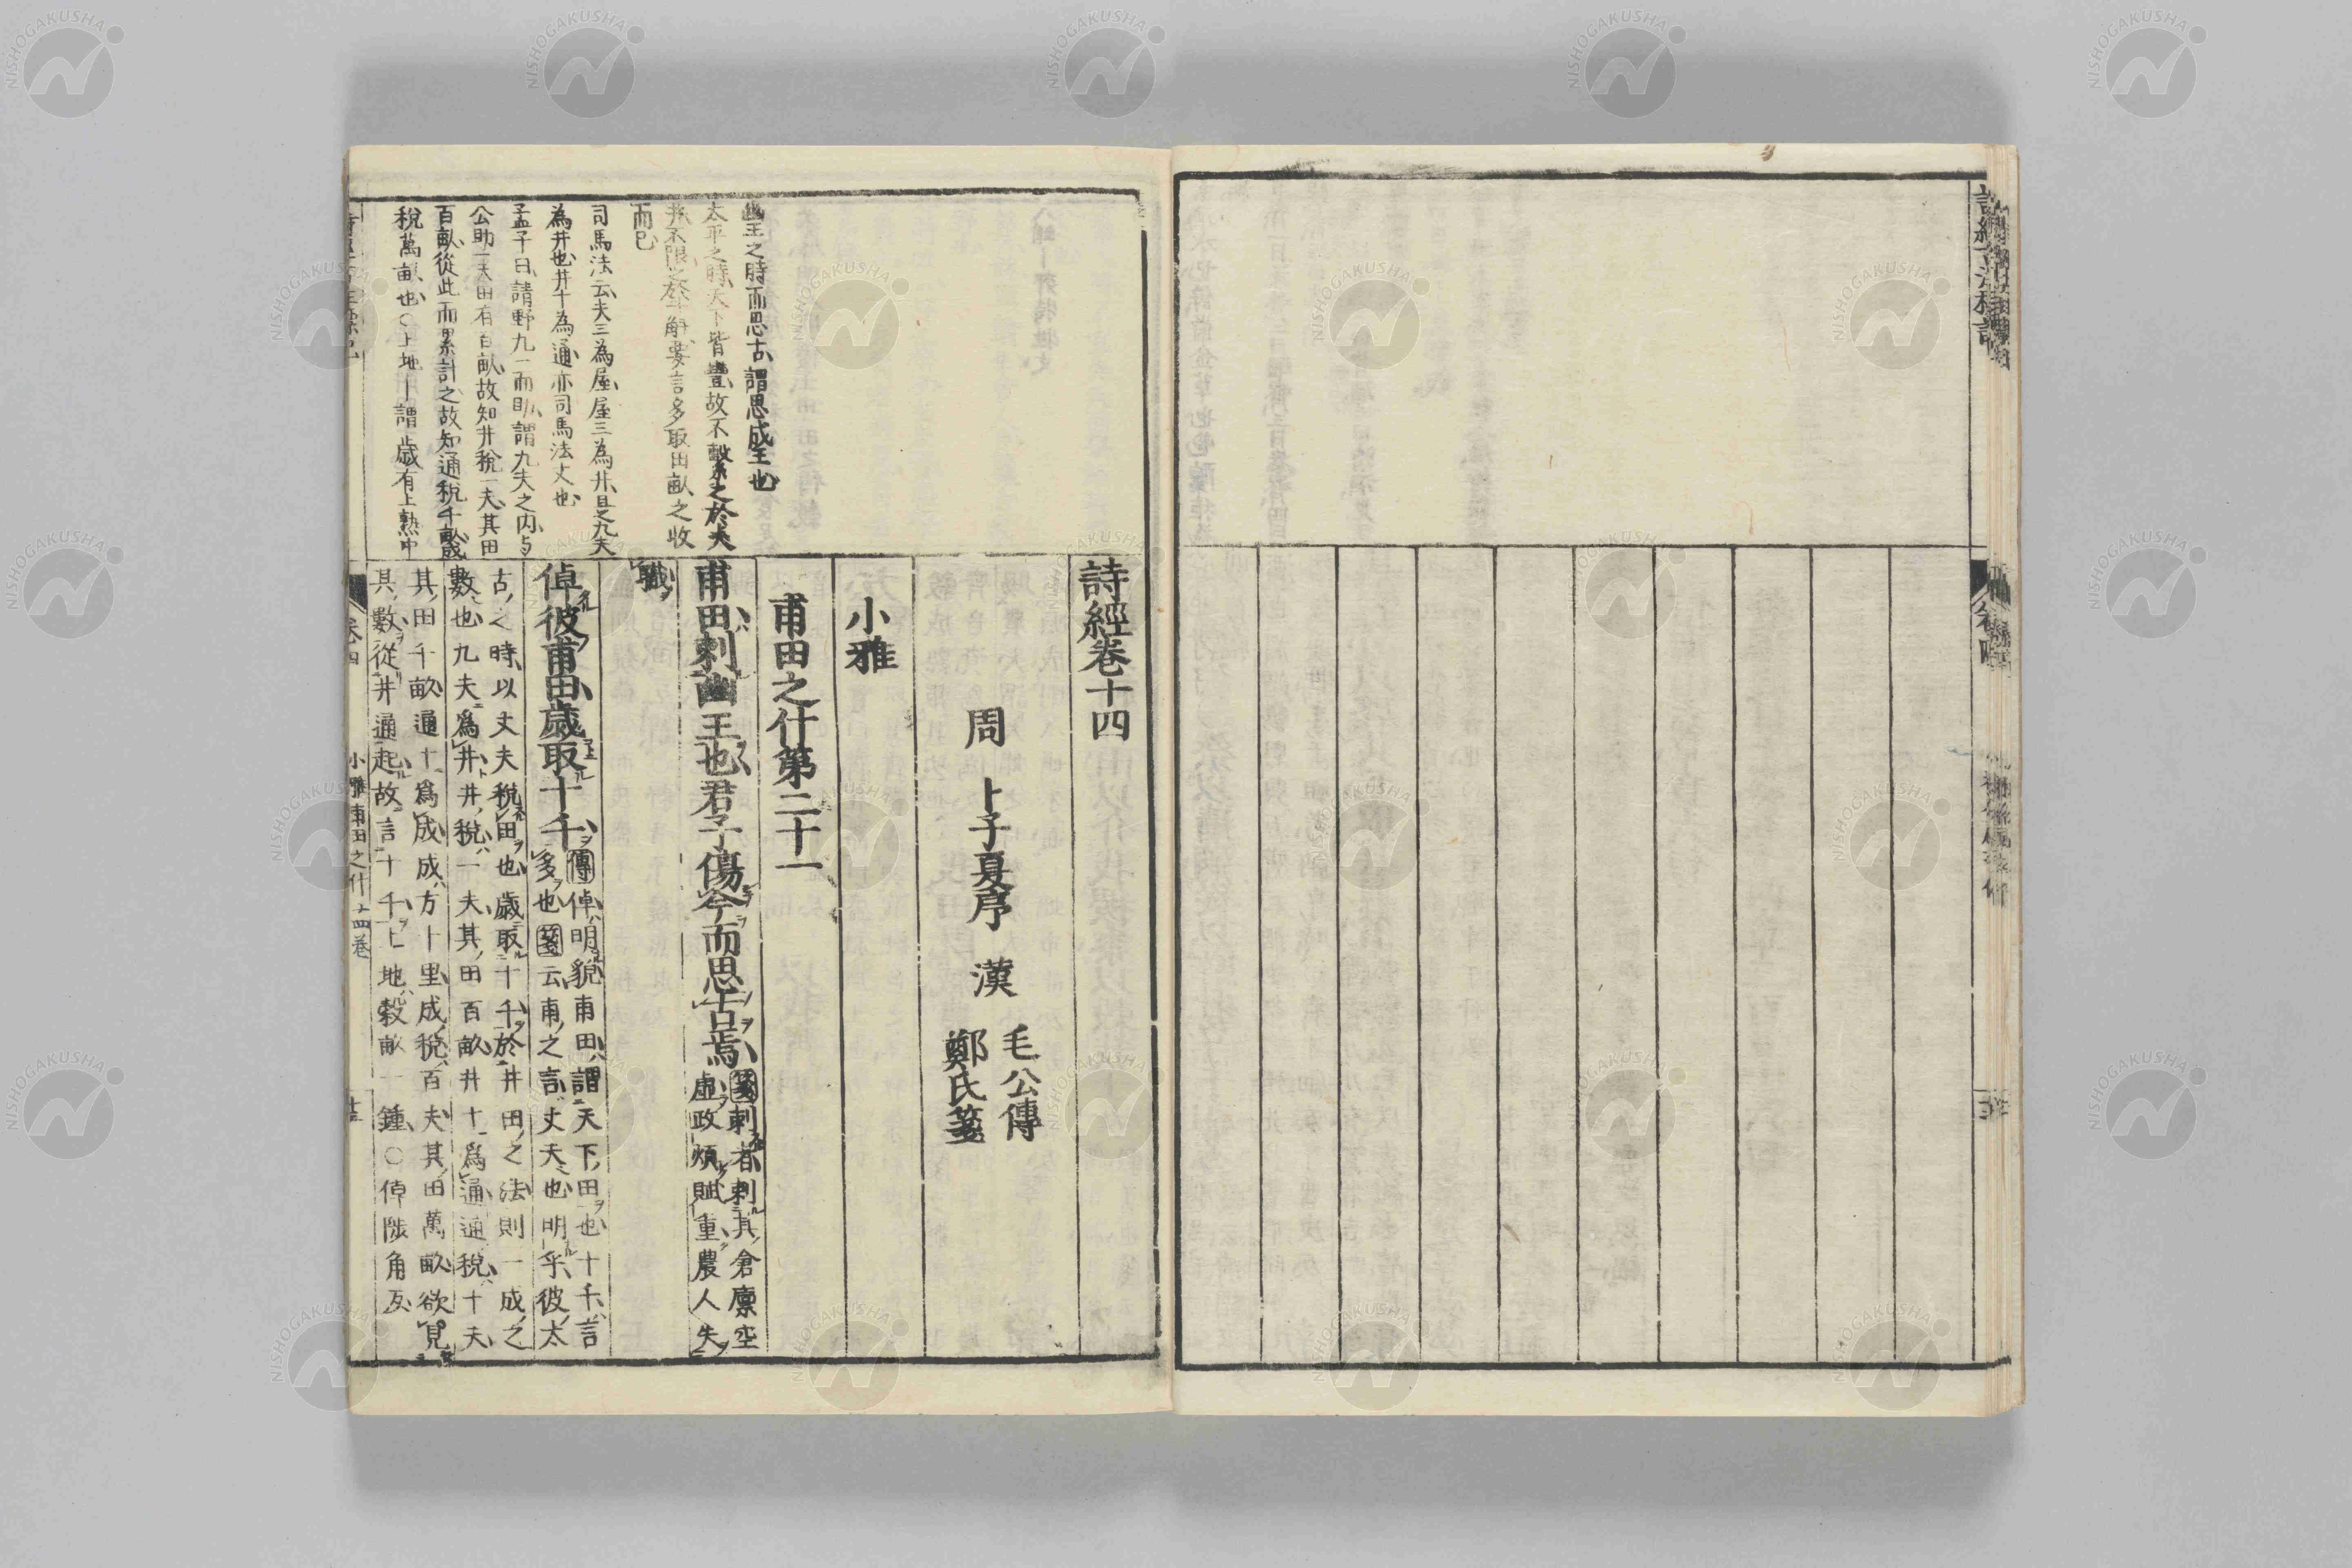 詩經卷十四
周 卜子夏序 漢 毛公傳
鄭氏箋
小雅
甫田之什第二十一
甫田刺幽王也君子傷今而思古焉
箋刺者刺其倉廩空
虛政煩賦重農人失
職
倬彼甫田歲取十千
傳倬明貌甫田謂天下田也十千言
多也箋云甫之言丈夫也明乎彼太
古之時以丈夫稅田也歲取十千於井田之法則一成之
數也九夫爲井井稅一夫其田百畝井十爲通通稅十夫
其田千畝通十爲成成方十里成稅百夫其田萬畝欲見
其數從井通起故言十千上地穀畝一鍾○倬陟角反
幽王之時而思古謂思成王也
太平之時天下皆豊故不繫之於夫
井不限之於斗斛要言多取田畝之收
而已
司馬法云夫三為屋屋三為井是九夫
為井也井十為通亦司馬法文也
孟子曰請野九一而助謂九夫之内与
公助一夫田有百畝故知井稅一夫其田
百畝從此而累計之故知通稅千畝成
稅萬畝也○上地ー謂歲有上熟中
小雅甫田之什
十四卷
NISHOGAKUSHA